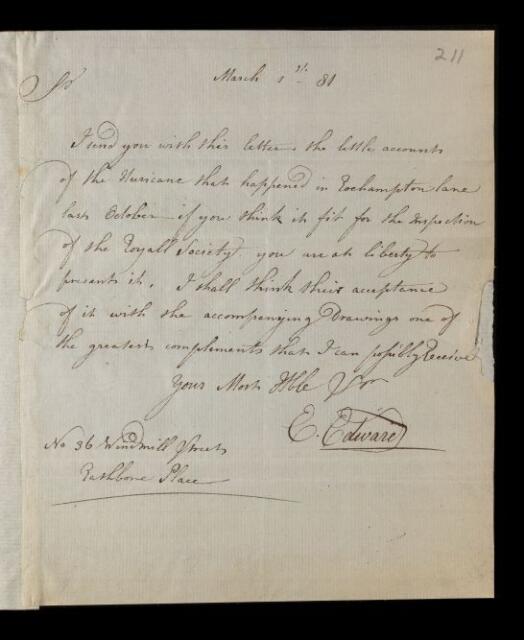 211
March 1st 81
Sr
I send you with this letter the little accounts
of the Huricane that happened in Roehampton lane
last October if you think it fit for the Inspection
of the Royall Society you are at liberty to
presents it. I shall think their acceptance
of it with the accompanying Drawings one of
the greatest compliments that I can possibly Receive
Yours Most Hble Sr
E. Edward
No 36 Windmill Street
Rathbone Place